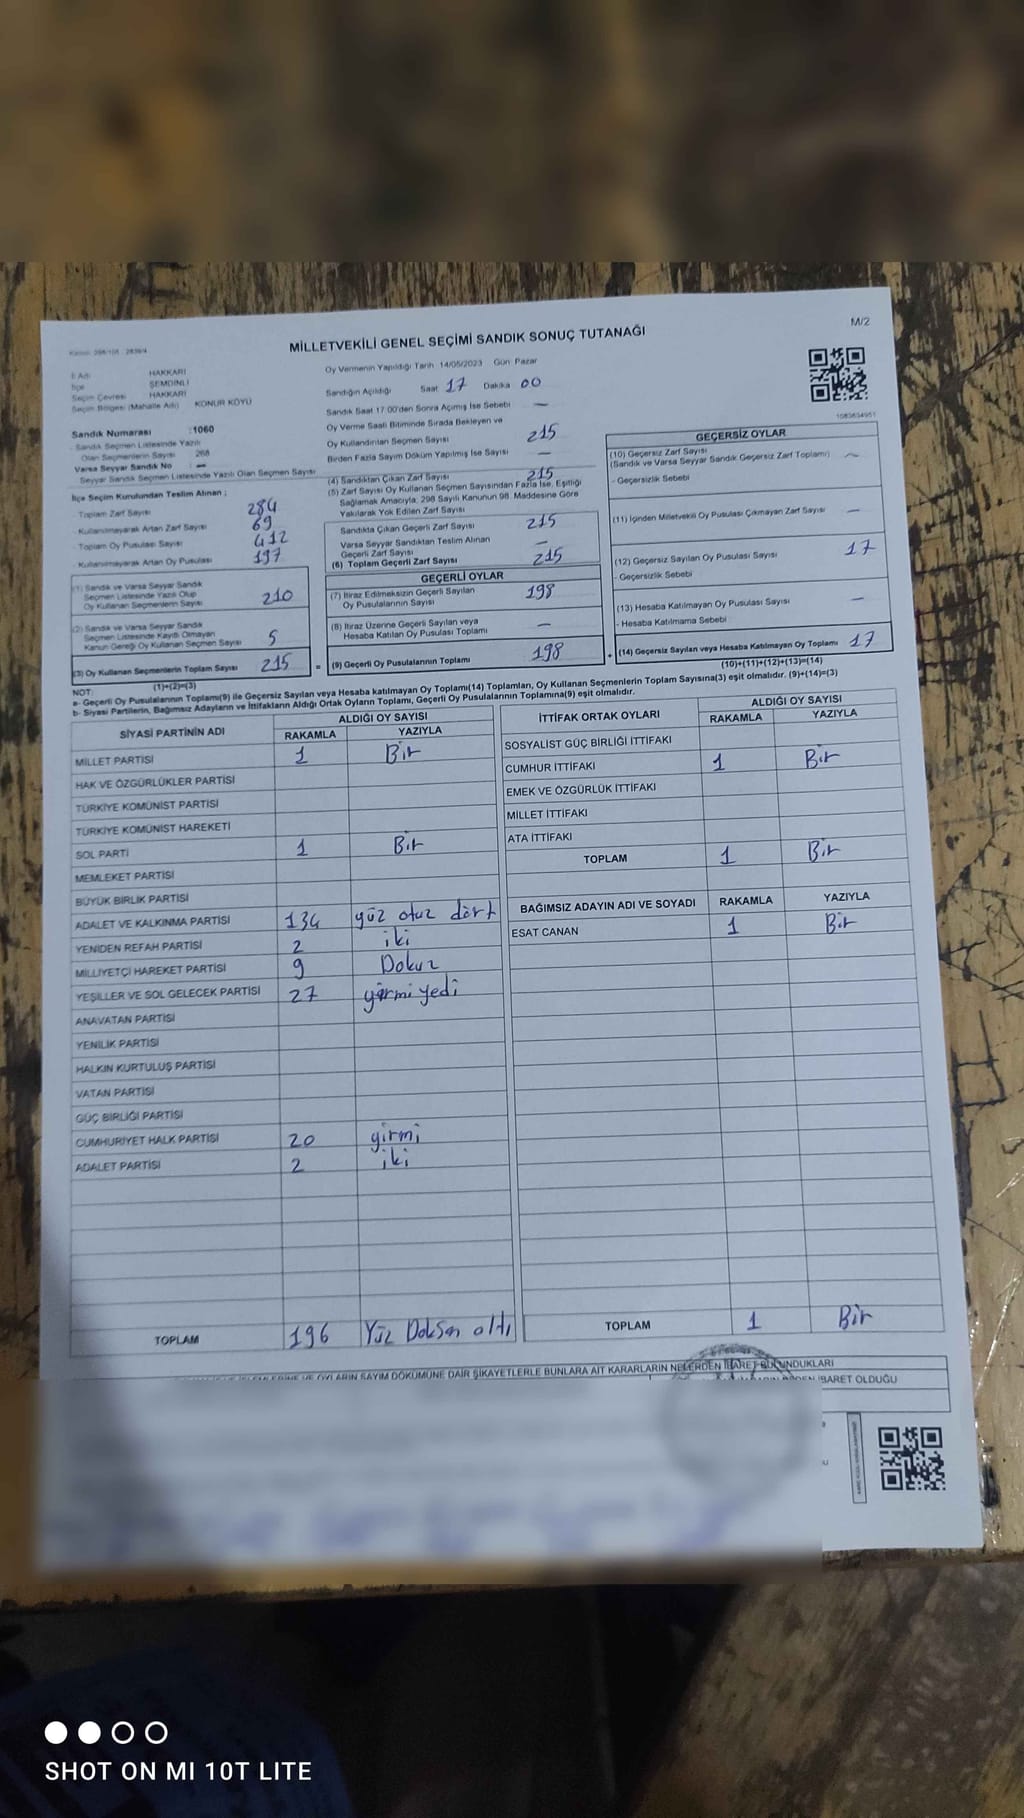 M/2
MİLLETVEKİLİ GENEL SEÇİMİ SANDIK SONUÇ TUTANAĞI
İl Adı HAKKARİ
İlçe ŞEMDİNLİ
Seçim Çevresi HAKKARİ
Seçim Bölgesi (Mahalle Adı) KONUR KÖYÜ
Sandık Numarası :1060
Sandık Seçmen Listesinde Yazılı
Olan Seçmenlerin Sayısı 268
Varsa Seyyar Sandık No : —
Seyyar Sandık Seçmen Listesinde Yazılı Olan Seçmen Sayısı
İlçe Seçim Kurulundan Teslim Alınan ;
Toplam Zarf Sayısı 284
Kullanılmayarak Artan Zarf Sayısı 69
Toplam Oy Pusulası Sayısı 412
Kullanılmayarak Artan Oy Pusulası 197
(1) Sandık ve Varsa Seyyar Sandık
Seçmen Listesinde Yazılı Olup
Oy Kullanan Seçmenlerin Sayısı 210
(2) Sandık ve Varsa Seyyar Sandık
Seçmen Listesinde Kayıtlı Olmayan
Kanun Gereği Oy Kullanan Seçmen Sayısı 5
(3) Oy Kullanan Seçmenlerin Toplam Sayısı 215
(1)+(2)=(3)
Oy Vermenin Yapıldığı Tarih 14/05/2023 Gün: Pazar
Sandığın Açıldığı Saat 17 Dakika 00
Sandık Saat 17:00'den Sonra Açımış İse Sebebi —
Oy Verme Saati Bitiminde Sırada Bekleyen ve
Oy Kullandırılan Seçmen Sayısı 215
Birden Fazla Sayım Döküm Yapılmış İse Sayısı —
(4) Sandıktan Çıkan Zarf Sayısı 215
(5) Zarf Sayısı Oy Kullanan Seçmen Sayısından Fazla İse, Eşitliği
Sağlamak Amacıyla; 298 Sayılı Kanunun 98. Maddesine Göre
Yakılarak Yok Edilen Zarf Sayısı
Sandıkta Çıkan Geçerli Zarf Sayısı 215
Varsa Seyyar Sandıktan Teslim Alınan
Geçerli Zarf Sayısı —
(6) Toplam Geçerli Zarf Sayısı 215
GEÇERLİ OYLAR
(7) İtiraz Edilmeksizin Geçerli Sayılan
Oy Pusulalarının Sayısı 198
(8) İtiraz Üzerine Geçerli Sayılan veya
Hesaba Katılan Oy Pusulası Toplamı —
= (9) Geçerli Oy Pusulalarının Toplamı 198
1083634951
GEÇERSİZ OYLAR
(10) Geçersiz Zarf Sayısı
(Sandık ve Varsa Seyyar Sandık Geçersiz Zarf Toplamı) —
- Geçersizlik Sebebi
(11) İçinden Milletvekili Oy Pusulası Çıkmayan Zarf Sayısı —
(12) Geçersiz Sayılan Oy Pusulası Sayısı 17
- Geçersizlik Sebebi
(13) Hesaba Katılmayan Oy Pusulası Sayısı —
- Hesaba Katılmama Sebebi
+ (14) Geçersiz Sayılan veya Hesaba Katılmayan Oy Toplamı 17
(10)+(11)+(12)+(13)=(14)
NOT:
a- Geçerli Oy Pusulalarının Toplamı(9) ile Geçersiz Sayılan veya Hesaba katılmayan Oy Toplamı(14) Toplamları, Oy Kullanan Seçmenlerin Toplam Sayısına(3) eşit olmalıdır. (9)+(14)=(3)
b- Siyasi Partilerin, Bağımsız Adayların ve İttifakların Aldığı Ortak Oyların Toplamı, Geçerli Oy Pusulalarının Toplamına(9) eşit olmalıdır.
SİYASİ PARTİNİN ADI ALDIĞI OY SAYISI
RAKAMLA YAZIYLA
MİLLET PARTİSİ 1 Bir
HAK VE ÖZGÜRLÜKLER PARTİSİ
TÜRKİYE KOMÜNİST PARTİSİ
TÜRKİYE KOMÜNİST HAREKETİ
SOL PARTİ 1 Bir
MEMLEKET PARTİSİ
BÜYÜK BİRLİK PARTİSİ
ADALET VE KALKINMA PARTİSİ 134 yüz otuz dört
YENİDEN REFAH PARTİSİ 2 iki
MİLLİYETÇİ HAREKET PARTİSİ 9 Dokuz
YEŞİLLER VE SOL GELECEK PARTİSİ 27 yirmi yedi
ANAVATAN PARTİSİ
YENİLİK PARTİSİ
HALKIN KURTULUŞ PARTİSİ
VATAN PARTİSİ
GÜÇ BİRLİĞİ PARTİSİ
CUMHURİYET HALK PARTİSİ 20 yirmi
ADALET PARTİSİ 2 iki
TOPLAM 196 Yüz Doksan altı
İTTİFAK ORTAK OYLARI ALDIĞI OY SAYISI
RAKAMLA YAZIYLA
SOSYALİST GÜÇ BİRLİĞİ İTTİFAKI
CUMHUR İTTİFAKI 1 Bir
EMEK VE ÖZGÜRLÜK İTTİFAKI
MİLLET İTTİFAKI
ATA İTTİFAKI
TOPLAM 1 Bir
BAĞIMSIZ ADAYIN ADI VE SOYADI RAKAMLA YAZIYLA
ESAT CANAN 1 Bir
TOPLAM 1 Bir
OYLARIN SAYIM DÖKÜMÜNE DAİR ŞİKAYETLERLE BUNLARA AİT KARARLARIN NELERDEN İBARET BULUNDUKLARI
İBARET OLDUĞU
SHOT ON MI 10T LITE